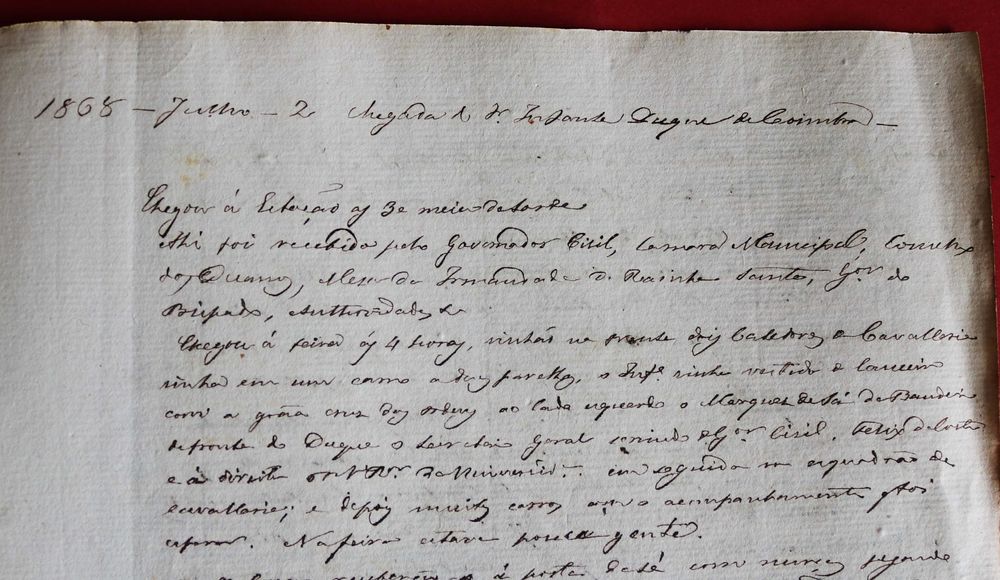 1868 – Julho – 2 Chegada do Sr. Infante Duque de Coimbra –
Chegou á Estação as 3 e meia da tarde
Ahi foi recebido pelo Governador Civil, Camara Municipal,
dos Decanos, Mesa da Irmandade da Rainha Santa, Gor. do
Bispado, Authoridades &
Chegou á feira ás 4 horas, vinhão na frente dois Batedores de Cavallaria
vinha em um carro a duas parelhas, o Infe. vinha vestido de lanceiro
com a grãa cruz das ordens ao lado esquerdo o Marquez de Sá da Bandeira
defronte do Duque o Secretario Geral servindo de Gor. Civil, Felix da Costa
e á direita o da
em seguida um esquadrão de
cavallaria; e depois muitos carros com o acompanhamento q foi
esperar. Na feira estava pouca gente.
á porta da sé com numa segunda